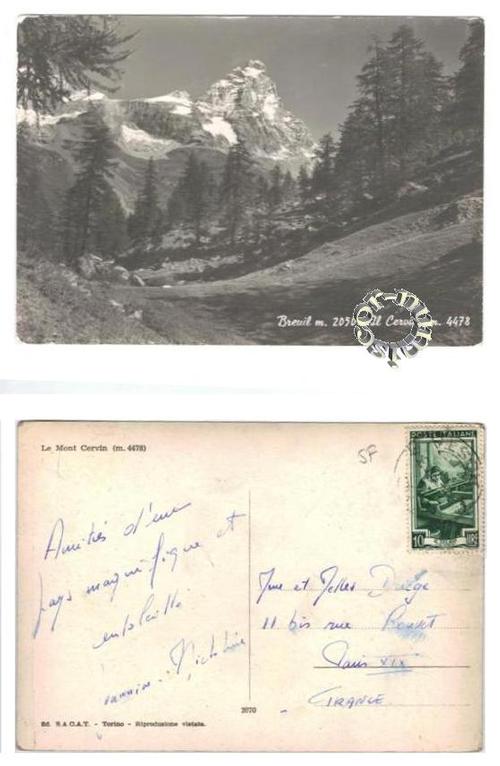 Breuil m. 2050 Il Cervino m. 4478
scor-num
Le Mont Cervin (m. 4478)
SF
POSTE ITALIANE
10 LIRE
Amitiés d'un
pays magnifique et
ensoleillé
Mme et Melles
11 bis rue
Paris XIX
FRANCE
2070
Ed. S.A.C.A.T. - Torino - Riproduzione vietata.